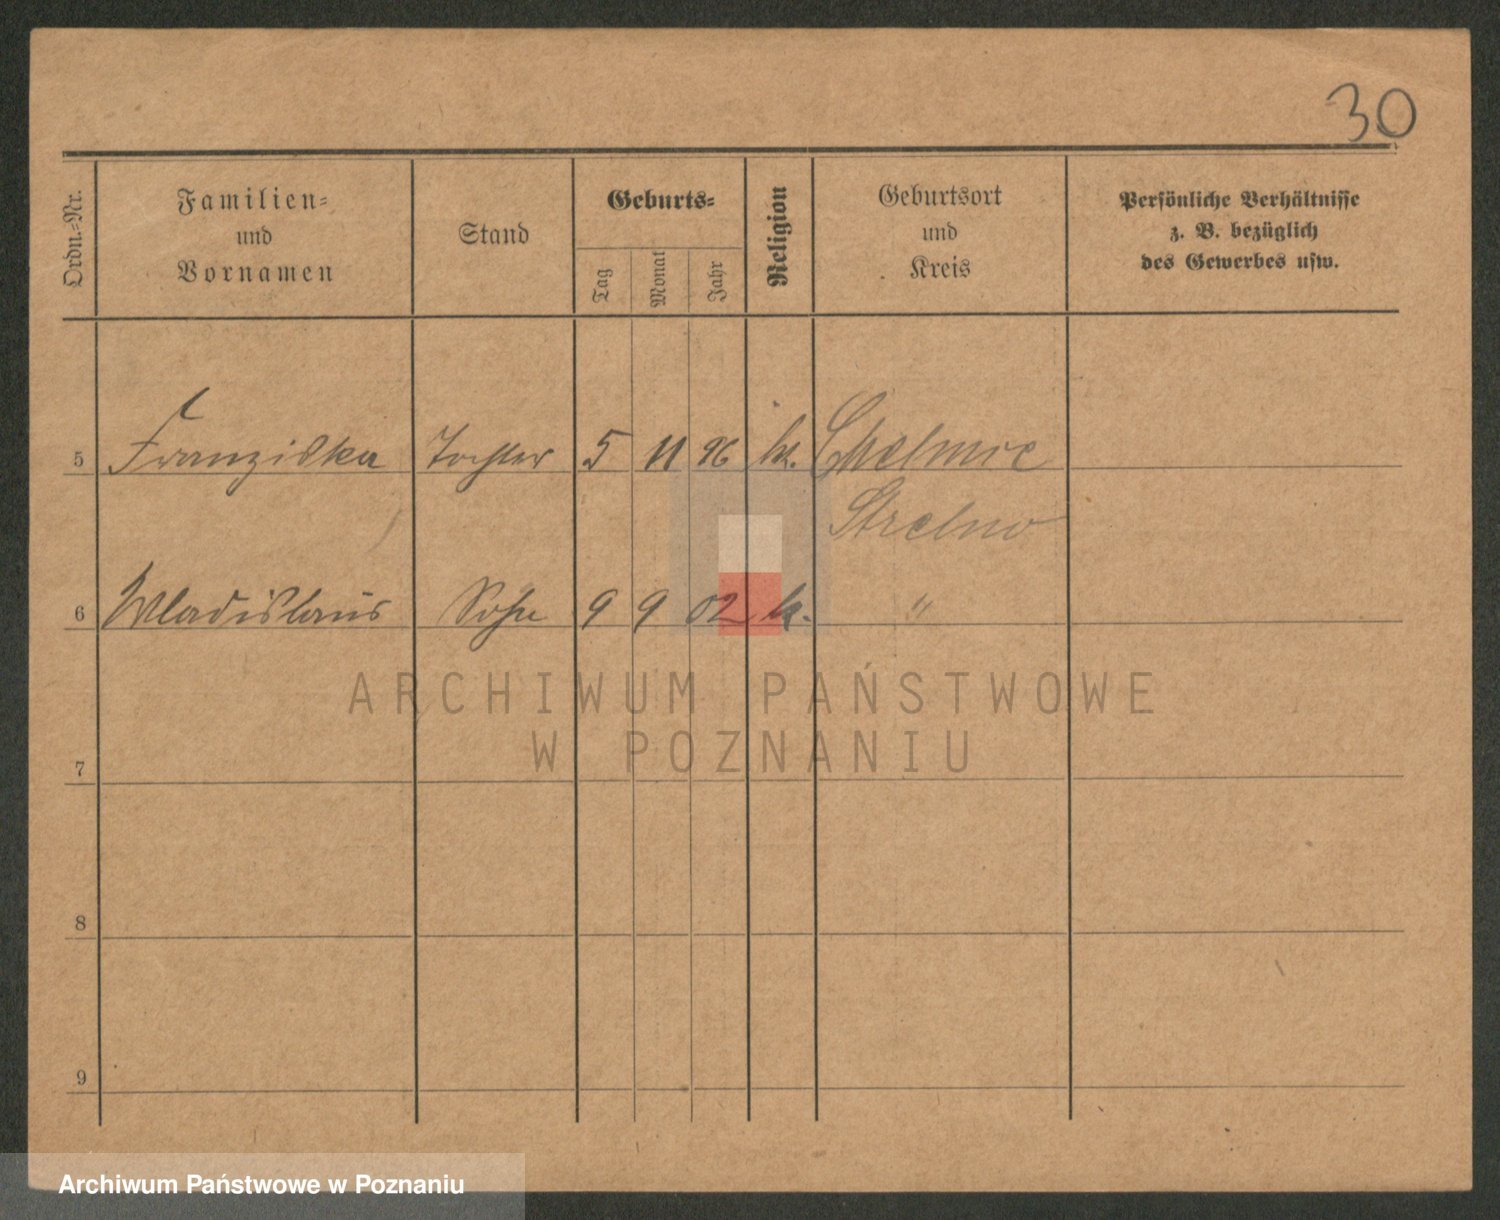 30
Ordn.-Nr.
Familien-
und
Vornamen
Stand
Geburts-
Tag
Monat
Jahr
Religion
Geburtsort
und
Kreis
Persönliche Verhältnisse
z. B. bezüglich
des Gewerbes usw.
5 Franziska Tochter 5 11 96 k. Chelmce
Strelno
6 Wladislaus Sohn 9 9 02 k. "
ARCHIWUM PAŃSTWOWE
W POZNANIU
7
8
9
Archiwum Państwowe w Poznaniu